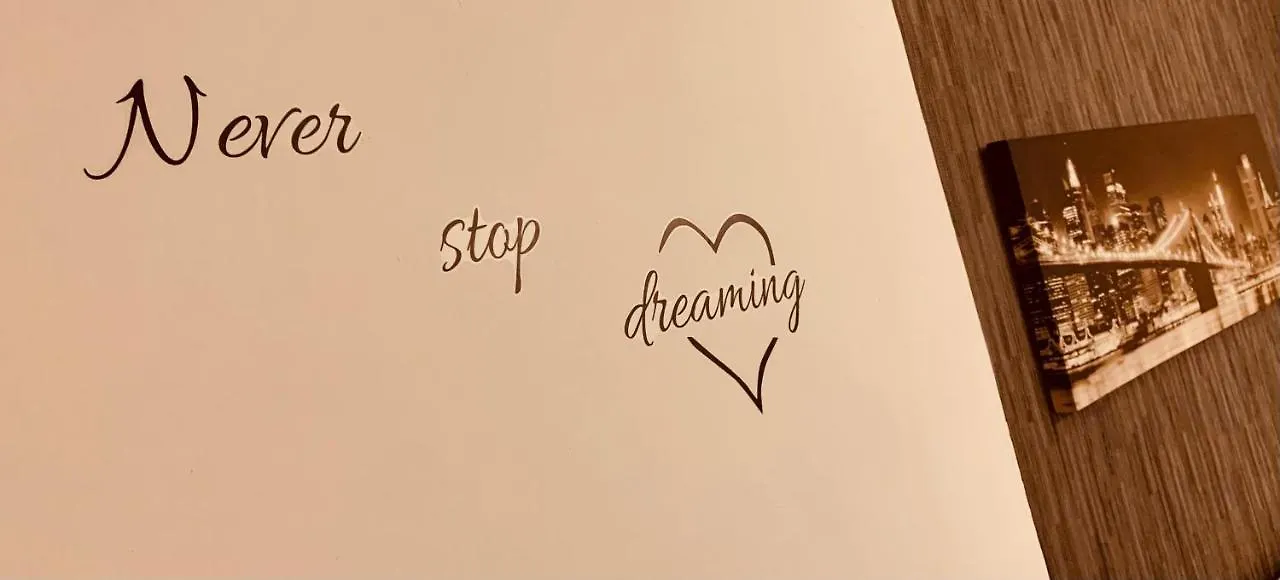 Never
stop
dreaming